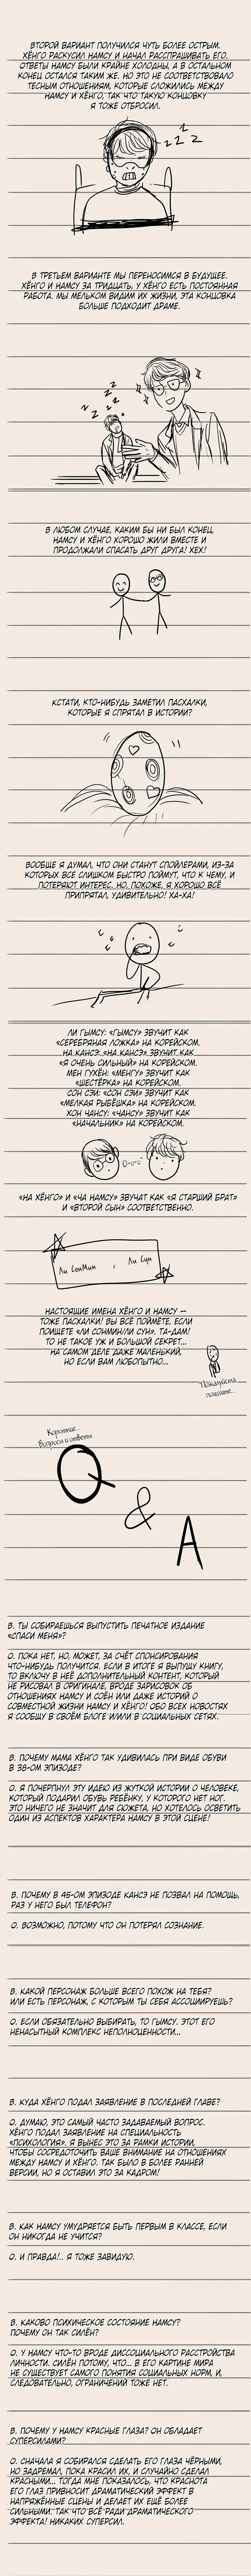 ВТОРОЙ ВАРИАНТ ПОЛУЧИЛСЯ ЧУТЬ БОЛЕЕ ОСТРЫМ.
ХЁНГО РАСКУСИЛ НАМСУ И НАЧАЛ РАССПРАШИВАТЬ ЕГО.
ОТВЕТЫ НАМСУ БЫЛИ КРАЙНЕ ХОЛОДНЫ, А В ОСТАЛЬНОМ
КОНЕЦ ОСТАЛСЯ ТАКИМ ЖЕ. НО ЭТО НЕ СООТВЕТСТВОВАЛО
ТЕСНЫМ ОТНОШЕНИЯМ, КОТОРЫЕ СЛОЖИЛИСЬ МЕЖДУ
НАМСУ И ХЁНГО, ТАК ЧТО ТАКУЮ КОНЦОВКУ
Я ТОЖЕ ОТБРОСИЛ.
z z z
В ТРЕТЬЕМ ВАРИАНТЕ МЫ ПЕРЕНОСИМСЯ В БУДУЩЕЕ.
ХЁНГО И НАМСУ ЗА ТРИДЦАТЬ, У ХЁНГО ЕСТЬ ПОСТОЯННАЯ
РАБОТА. МЫ МЕЛЬКОМ ВИДИМ ИХ ЖИЗНИ, ЭТА КОНЦОВКА
БОЛЬШЕ ПОДХОДИТ ДРАМЕ.
В ЛЮБОМ СЛУЧАЕ, КАКИМ БЫ НИ БЫЛ КОНЕЦ,
НАМСУ И ХЁНГО ХОРОШО ЖИЛИ ВМЕСТЕ И
ПРОДОЛЖАЛИ СПАСАТЬ ДРУГ ДРУГА! ХЕХ!
КСТАТИ, КТО-НИБУДЬ ЗАМЕТИЛ ПАСХАЛКИ,
КОТОРЫЕ Я СПРЯТАЛ В ИСТОРИИ?
ВООБЩЕ Я ДУМАЛ, ЧТО ОНИ СТАНУТ СПОЙЛЕРАМИ, ИЗ-ЗА
КОТОРЫХ ВСЕ СЛИШКОМ БЫСТРО ПОЙМУТ, ЧТО К ЧЕМУ, И
ПОТЕРЯЮТ ИНТЕРЕС. НО, ПОХОЖЕ, Я ХОРОШО ВСЁ
ПРИПРЯТАЛ, УДИВИТЕЛЬНО! ХА-ХА!
ЛИ ГЫМСУ: «ГЫМСУ» ЗВУЧИТ КАК
«СЕРЕБРЯНАЯ ЛОЖКА» НА КОРЕЙСКОМ.
НА КАНСЭ: «НА КАНСЭ» ЗВУЧИТ КАК
«Я ОЧЕНЬ СИЛЬНЫЙ» НА КОРЕЙСКОМ.
МЕН ГУХЁН: «МЕНГУ» ЗВУЧИТ КАК
«ШЕСТЁРКА» НА КОРЕЙСКОМ.
СОН СЭИ: «СОН СЭИ» ЗВУЧИТ КАК
«МЕЛКАЯ РЫБЁШКА» НА КОРЕЙСКОМ.
ХОН ЧАНСУ: «ЧАНСУ» ЗВУЧИТ КАК
«НАЧАЛЬНИК» НА КОРЕЙСКОМ.
«НА ХЁНГО» И «ЧА НАМСУ» ЗВУЧАТ КАК «Я СТАРШИЙ БРАТ»
И «ВТОРОЙ СЫН» СООТВЕТСТВЕННО.
Ли СонМин , Ли Сун
НАСТОЯЩИЕ ИМЕНА ХЁНГО И НАМСУ —
ТОЖЕ ПАСХАЛКИ! ВЫ ВСЁ ПОЙМЁТЕ, ЕСЛИ
ПОИЩЕТЕ «ЛИ СОНМИН/ЛИ СУН». ТА-ДАМ!
ТО НЕ ТАКОЕ УЖ И БОЛЬШОЙ СЕКРЕТ...
НА САМОМ ДЕЛЕ ДАЖЕ МАЛЕНЬКИЙ,
НО ЕСЛИ ВАМ ЛЮБОПЫТНО...
Пожалуйста
поищите...
Короткие..
Вопросы и ответы
Q & A
В. ТЫ СОБИРАЕШЬСЯ ВЫПУСТИТЬ ПЕЧАТНОЕ ИЗДАНИЕ
«СПАСИ МЕНЯ»?
О. ПОКА НЕТ, НО, МОЖЕТ, ЗА СЧЁТ СПОНСИРОВАНИЯ
ЧТО-НИБУДЬ ПОЛУЧИТСЯ. ЕСЛИ В ИТОГЕ Я ВЫПУЩУ КНИГУ,
ТО ВКЛЮЧУ В НЕЁ ДОПОЛНИТЕЛЬНЫЙ КОНТЕНТ, КОТОРЫЙ
НЕ РИСОВАЛ В ОРИГИНАЛЕ, ВРОДЕ ЗАРИСОВОК ОБ
ОТНОШЕНИЯХ НАМСУ И СОЁН ИЛИ ДАЖЕ ИСТОРИЙ О
СОВМЕСТНОЙ ЖИЗНИ НАМСУ И ХЁНГО! ОБО ВСЕХ НОВОСТЯХ
Я СООБЩУ В СВОЁМ БЛОГЕ И/ИЛИ В СОЦИАЛЬНЫХ СЕТЯХ.
В. ПОЧЕМУ МАМА ХЁНГО ТАК УДИВИЛАСЬ ПРИ ВИДЕ ОБУВИ
В 38-ОМ ЭПИЗОДЕ?
О. Я ПОЧЕРПНУЛ ЭТУ ИДЕЮ ИЗ ЖУТКОЙ ИСТОРИИ О ЧЕЛОВЕКЕ,
КОТОРЫЙ ПОДАРИЛ ОБУВЬ РЕБЁНКУ, У КОТОРОГО НЕТ НОГ.
ЭТО НИЧЕГО НЕ ЗНАЧИТ ДЛЯ СЮЖЕТА, НО ХОТЕЛОСЬ ОСВЕТИТЬ
ОДИН ИЗ АСПЕКТОВ ХАРАКТЕРА НАМСУ В ЭТОЙ СЦЕНЕ!
В. ПОЧЕМУ В 46-ОМ ЭПИЗОДЕ КАНСЭ НЕ ПОЗВАЛ НА ПОМОЩЬ,
РАЗ У НЕГО БЫЛ ТЕЛЕФОН?
О. ВОЗМОЖНО, ПОТОМУ ЧТО ОН ПОТЕРЯЛ СОЗНАНИЕ.
В. КАКОЙ ПЕРСОНАЖ БОЛЬШЕ ВСЕГО ПОХОЖ НА ТЕБЯ?
ИЛИ ЕСТЬ ПЕРСОНАЖ, С КОТОРЫМ ТЫ СЕБЯ АССОЦИИРУЕШЬ?
О. ЕСЛИ ОБЯЗАТЕЛЬНО ВЫБИРАТЬ, ТО ГЫМСУ. ЭТОТ ЕГО
НЕНАСЫТНЫЙ КОМПЛЕКС НЕПОЛНОЦЕННОСТИ...
В. КУДА ХЁНГО ПОДАЛ ЗАЯВЛЕНИЕ В ПОСЛЕДНЕЙ ГЛАВЕ?
О. ДУМАЮ, ЭТО САМЫЙ ЧАСТО ЗАДАВАЕМЫЙ ВОПРОС.
ХЁНГО ПОДАЛ ЗАЯВЛЕНИЕ НА СПЕЦИАЛЬНОСТЬ
«ПСИХОЛОГИЯ». Я ВЫНЕС ЭТО ЗА РАМКИ ИСТОРИИ,
ЧТОБЫ СОСРЕДОТОЧИТЬ ВАШЕ ВНИМАНИЕ НА ОТНОШЕНИЯХ
МЕЖДУ НАМСУ И ХЁНГО. ТАК БЫЛО В БОЛЕЕ РАННЕЙ
ВЕРСИИ, НО Я ОСТАВИЛ ЭТО ЗА КАДРОМ!
В. КАК НАМСУ УМУДРЯЕТСЯ БЫТЬ ПЕРВЫМ В КЛАССЕ, ЕСЛИ
ОН НИКОГДА НЕ УЧИТСЯ?
О. И ПРАВДА!.. Я ТОЖЕ ЗАВИДУЮ.
В. КАКОВО ПСИХИЧЕСКОЕ СОСТОЯНИЕ НАМСУ?
ПОЧЕМУ ОН ТАК СИЛЁН?
О. У НАМСУ ЧТО-ТО ВРОДЕ ДИССОЦИАЛЬНОГО РАССТРОЙСТВА
ЛИЧНОСТИ. СИЛЁН ПОТОМУ, ЧТО... В ЕГО КАРТИНЕ МИРА
НЕ СУЩЕСТВУЕТ САМОГО ПОНЯТИЯ СОЦИАЛЬНЫХ НОРМ, И,
СЛЕДОВАТЕЛЬНО, ОГРАНИЧЕНИЙ ТОЖЕ НЕТ.
В. ПОЧЕМУ У НАМСУ КРАСНЫЕ ГЛАЗА? ОН ОБЛАДАЕТ
СУПЕРСИЛАМИ?
О. СНАЧАЛА Я СОБИРАЛСЯ СДЕЛАТЬ ЕГО ГЛАЗА ЧЁРНЫМИ,
НО ЗАДРЕМАЛ, ПОКА КРАСИЛ ИХ, И СЛУЧАЙНО СДЕЛАЛ
КРАСНЫМИ... ТОГДА МНЕ ПОКАЗАЛОСЬ, ЧТО КРАСНОТА
ЕГО ГЛАЗ ПРИВНОСИТ ДРАМАТИЧЕСКИЙ ЭФФЕКТ В
НАПРЯЖЁННЫЕ СЦЕНЫ И ДЕЛАЕТ ИХ ЕЩЁ БОЛЕЕ
СИЛЬНЫМИ. ТАК ЧТО ВСЁ РАДИ ДРАМАТИЧЕСКОГО
ЭФФЕКТА! НИКАКИХ СУПЕРСИЛ.